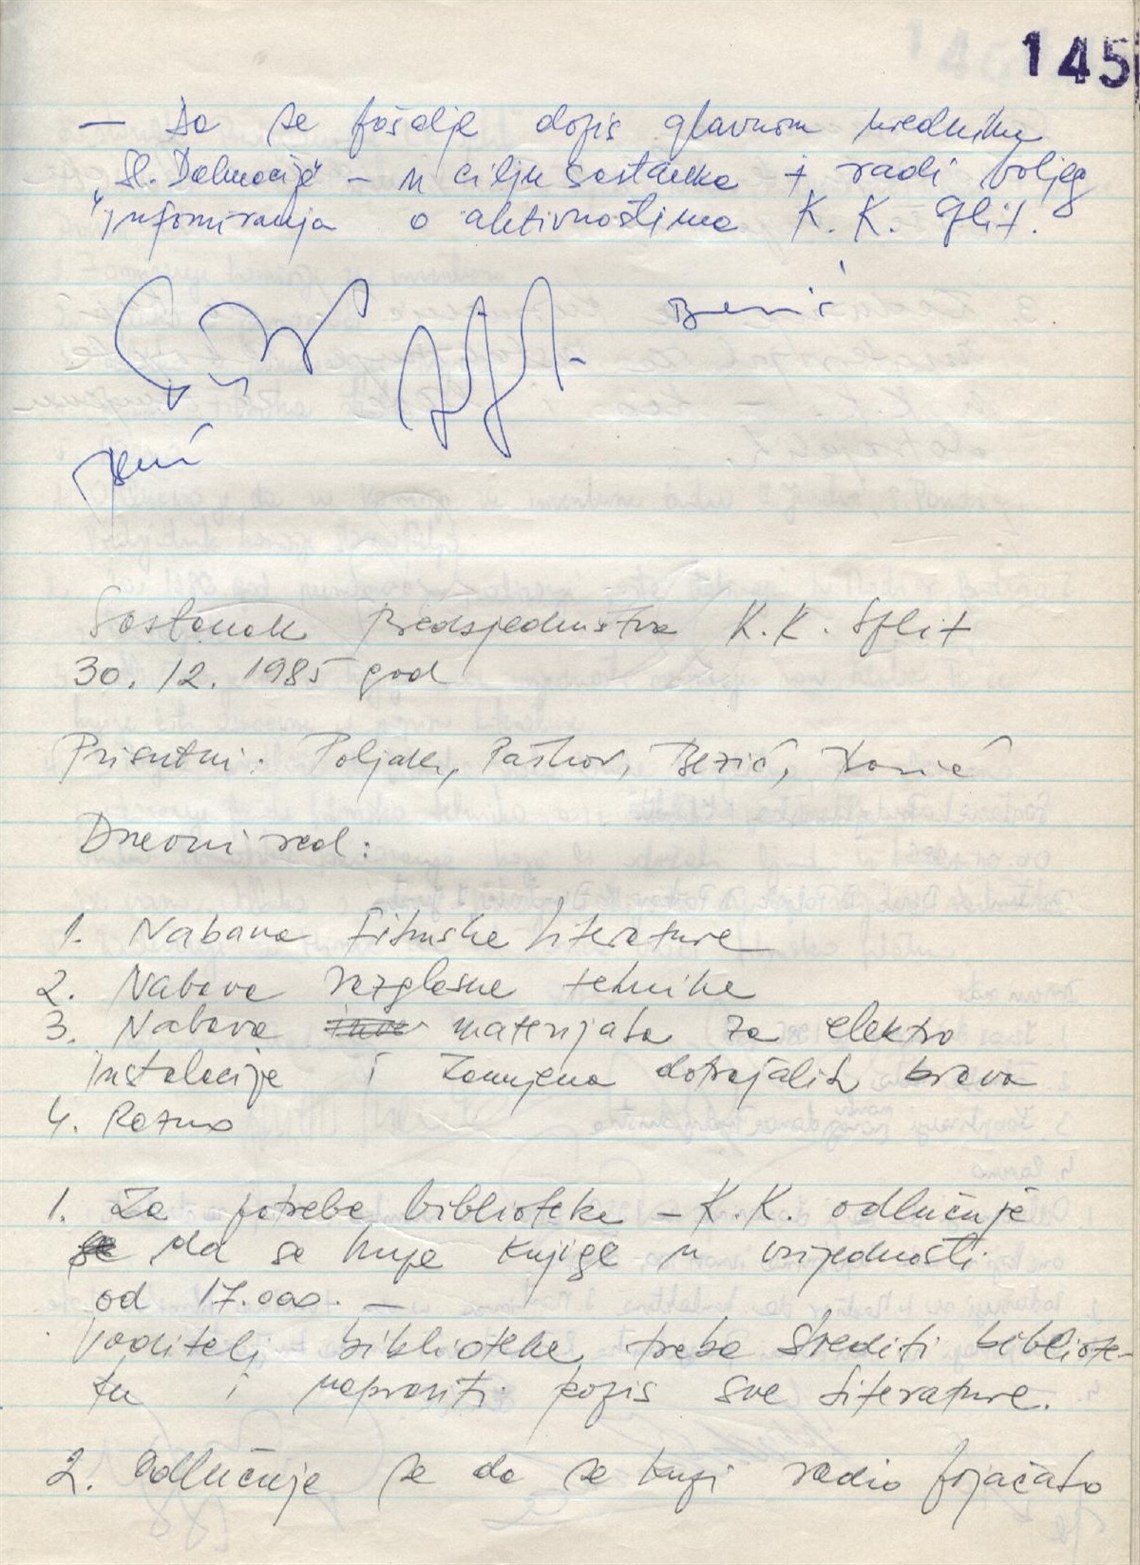 145
— Da se pošalje dopis glavnom uredniku
"Sl. Dalmacije" – u cilju sastanka + radi boljeg
informiranja o aktivnostima K. K. Split.
Bezić
Sastanak Predsjedništva K.K. Split
30. 12. 1985 god
Prisutni: Poljak, Paškov, Bezić,
Dnevni red:
1. Nabava filmske literature
2. Nabava razglasne tehnike
3. Nabava materijala za elektro
instalacije i zamjena dotrajalih brava
4. Razno
1. Za potrebe biblioteke – K.K. odlučuje
se da se kupe knjige u vrijednosti
od 17.000. —
Voditelj biblioteke treba srediti bibliote-
ku i napraviti popis sve literature.
2. Odlučuje se da se kupi radio pojačalo